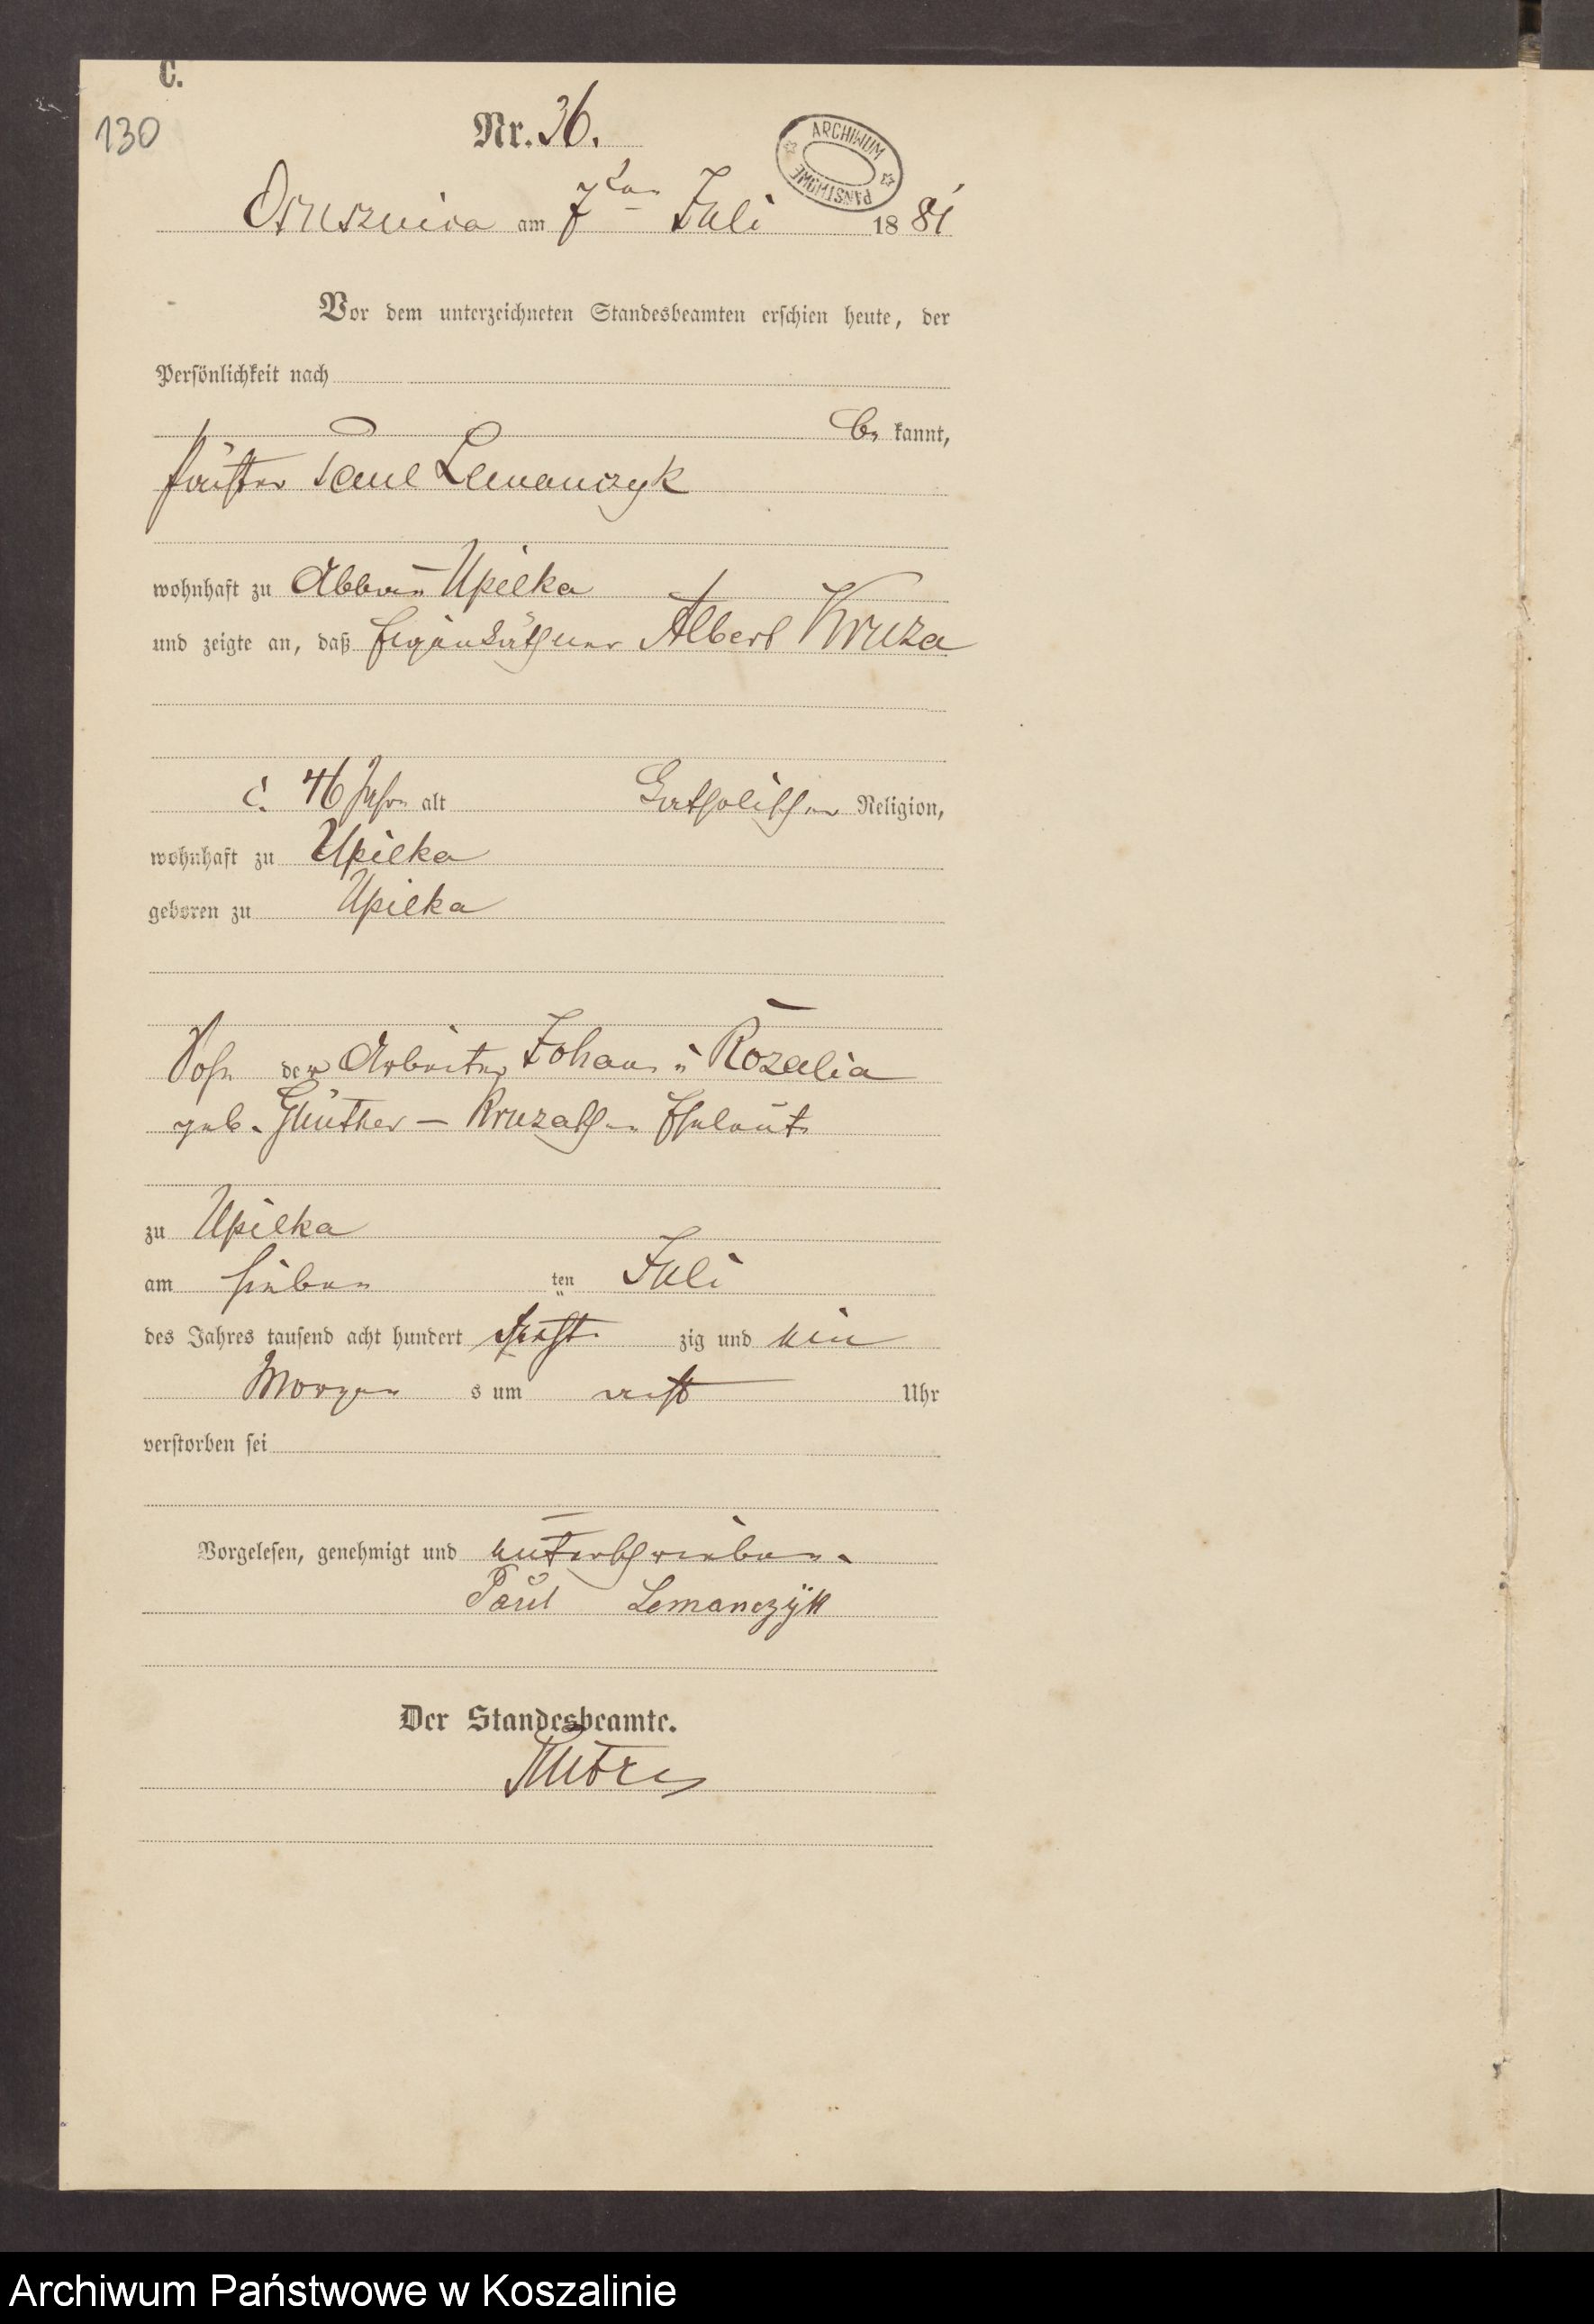 C.
130
Nr. 36.
ARCHIWUM PAŃSTWOWE
Osusznica am 7ten Juli 1881
Vor dem unterzeichneten Standesbeamten erschien heute, der
Persönlichkeit nach
be kannt,
Paul Lemanczyk
wohnhaft zu Abbau Upilka
und zeigte an, daß Eigenkäthner Albert Kruza
c. 46 Jahr alt katholischer Religion,
wohnhaft zu Upilka
geboren zu Upilka
Sohn der Arbeiter Johann u Rozalia
geb. Günther – Kruzaschen Eheleute
zu Upilka
am sieben ten Juli
des Jahres tausend acht hundert acht zig und ein
Morgen s um acht Uhr
verstorben sei
Vorgelesen, genehmigt und unterschrieben.
Paul Lemanczÿk
Der Standesbeamte.
Archiwum Państwowe w Koszalinie